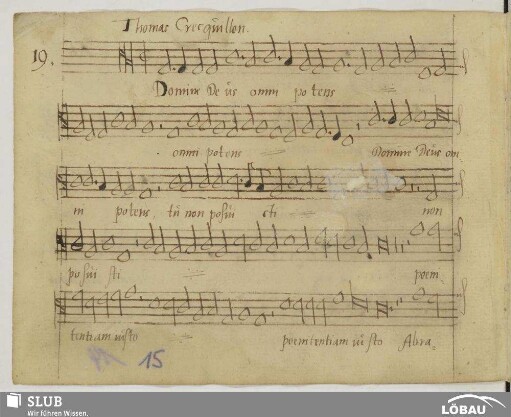 Thomas Crecquillon.
19.
Domine Deus omni potens
omni potens Domine Deus om
ni potens, tu non posui sti non
posui sti poem
tentiam iusto poenitentiam iusto Abra-
15
SLUB
Wir führen Wissen.
LÖBAU